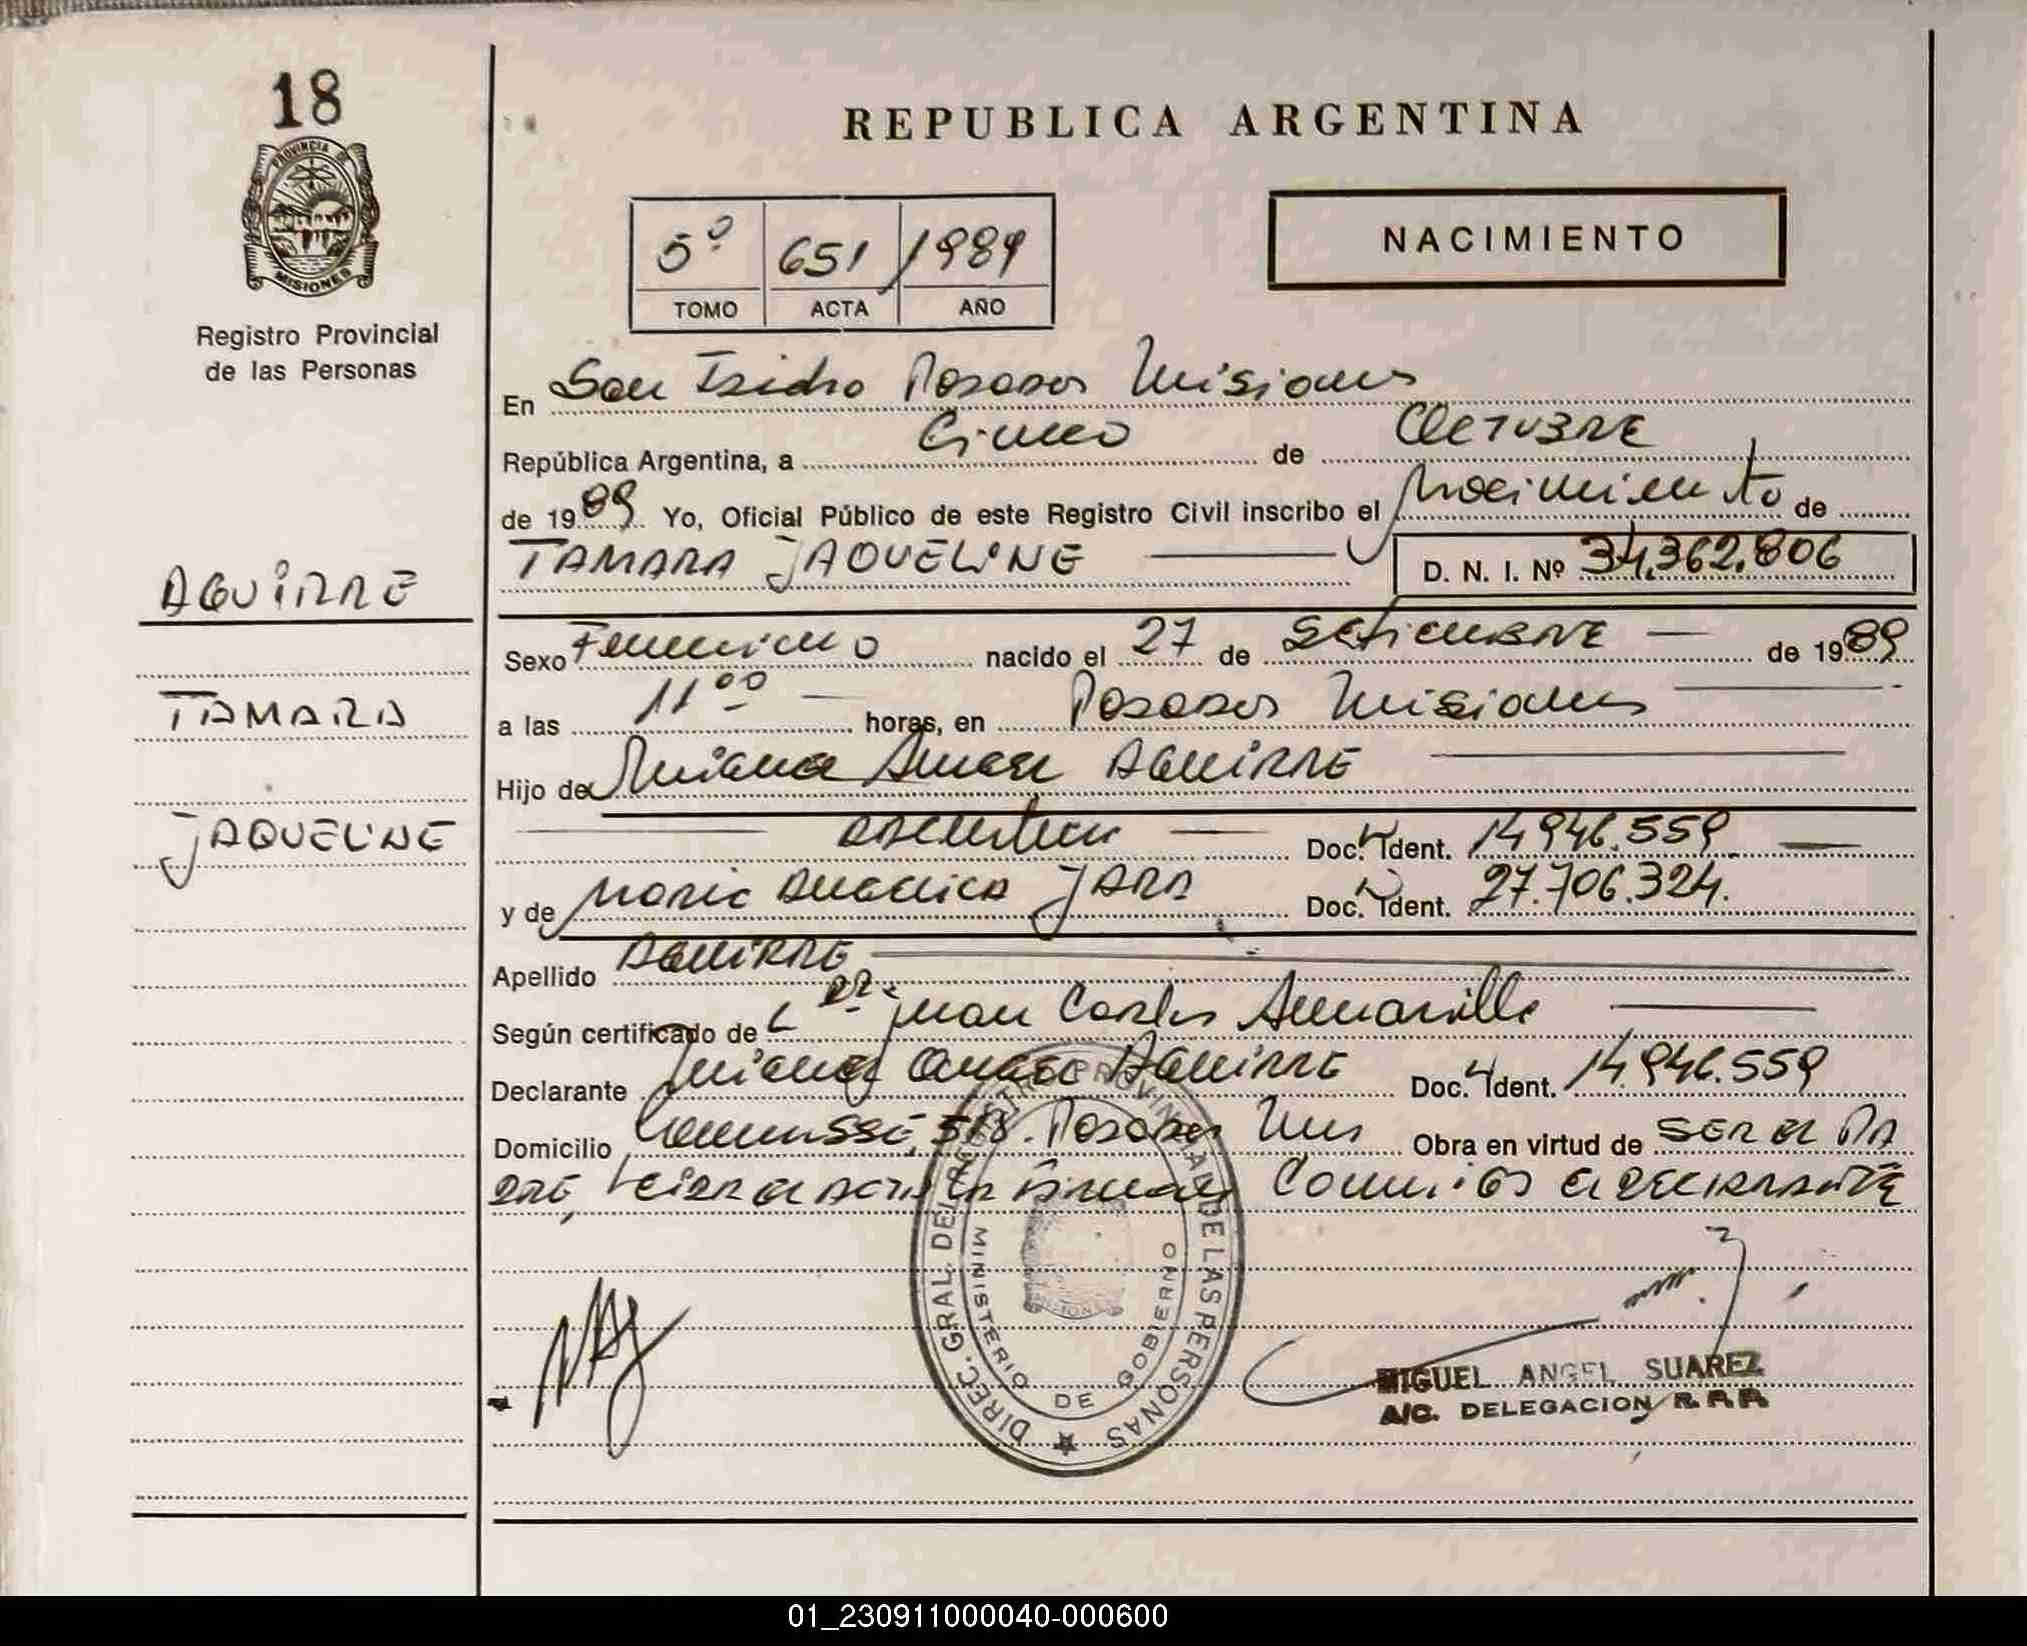 18
REPUBLICA ARGENTINA
PROVINCIA DE
MISIONES
Registro Provincial
de las Personas
5º 651 / 1989
TOMO ACTA AÑO
NACIMIENTO
En San Isidro Posadas Misiones
República Argentina, a Cinco de OCTUBRE
de 1989 Yo, Oficial Público de este Registro Civil inscribo el Nacimiento de
TAMARA JAQUELINE D. N. I. Nº 34.362.806
AGUIRRE
TAMARA
JAQUELINE
Sexo Femenino nacido el 27 de SETIEMBRE de 1989
a las 11 00 horas, en Posadas Misiones
Hijo de AGUIRRE
Doc. Ident. 14.946.559
y de Maria Angelica JARA Doc. Ident. 27.706.324.
Apellido AGUIRRE
Según certificado de Juan Carlos
Declarante AGUIRRE Doc. Ident. 14.946.559
Domicilio 518. Posadas Mnes Obra en virtud de SER el PA
DRE, Leida el acta la firma Conmigo el DECLARANTE
DIREC. GRAL. DEL REGISTRO PROVINCIAL DE LAS PERSONAS
MINISTERIO DE GOBIERNO
MIGUEL ANGEL SUAREZ
A/C. DELEGACION R. P. P.
01_230911000040-000600